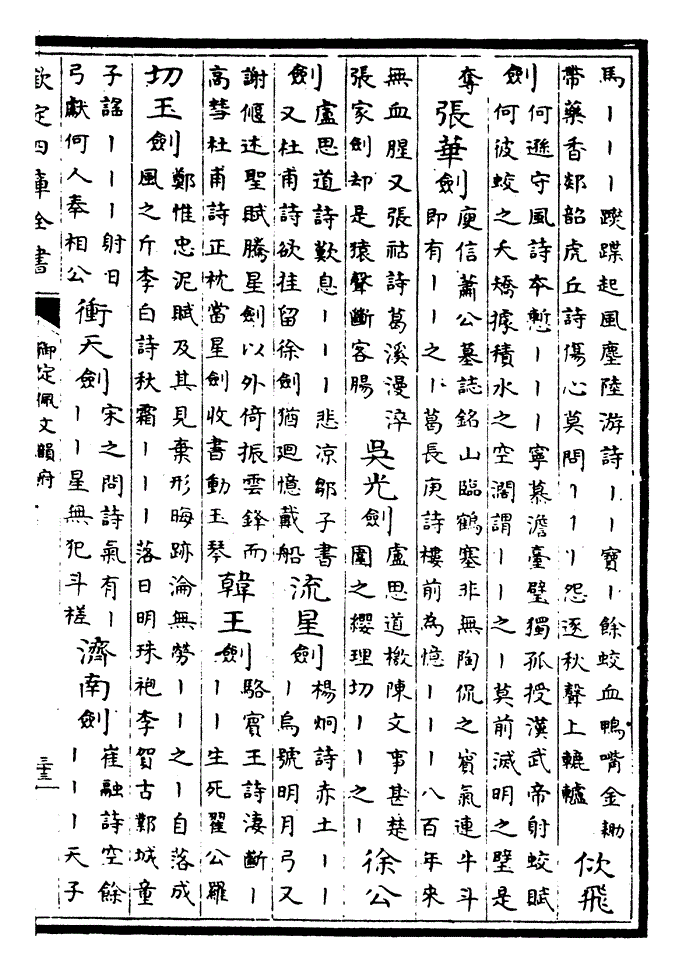 馬丨丨丨蹀蹀起風塵陸游詩丨丨寶丨餘蛟血鴨嘴金耡
帶藥香郯韶虎丘詩傷心莫問丨丨丨怨逐秋聲上轆轤
佽飛
劍
何遜守風詩本慙丨丨丨寧慕澹臺璧獨孤授漢武帝射蛟賦
何彼蛟之夭矯據積水之空濶謂丨丨之丨莫前滅明之璧是
奪
張華劍
庾信蕭公墓誌銘山臨鶴塞非無陶侃之賓氣連牛斗
即有丨丨之丨葛長庚詩樓前為憶丨丨丨八百年來
無血腥又張祜詩葛溪漫淬
張家劍却是猿聲斷客腸
吳光劍
盧思道檄陳文事甚楚
圍之纓理切丨丨之丨
徐公
劍
盧思道詩歎息丨丨丨悲凉鄒子書
又杜甫詩欲挂留徐劍猶廻憶戴船
流星劍
楊炯詩赤土丨丨
丨烏號明月弓又
謝偃述聖賦騰星劍以外倚振雲鋒而
高彗杜甫詩正枕當星劍收書動玉琴
韓王劍
駱賓王詩淒斷丨
丨丨生死翟公羅
切玉劍
鄭惟忠泥賦及其見棄形晦跡淪無勞丨丨之丨自落成
風之斤李白詩秋霜丨丨丨落日明珠袍李賀古鄴城童
子謡丨丨丨射日
弓獻何人奉相公
衝天劍
宋之問詩氣有丨
丨丨星無犯斗槎
濟南劍
崔融詩空餘
丨丨丨天子
欽定四庫全書
御定佩文韻府
三十三